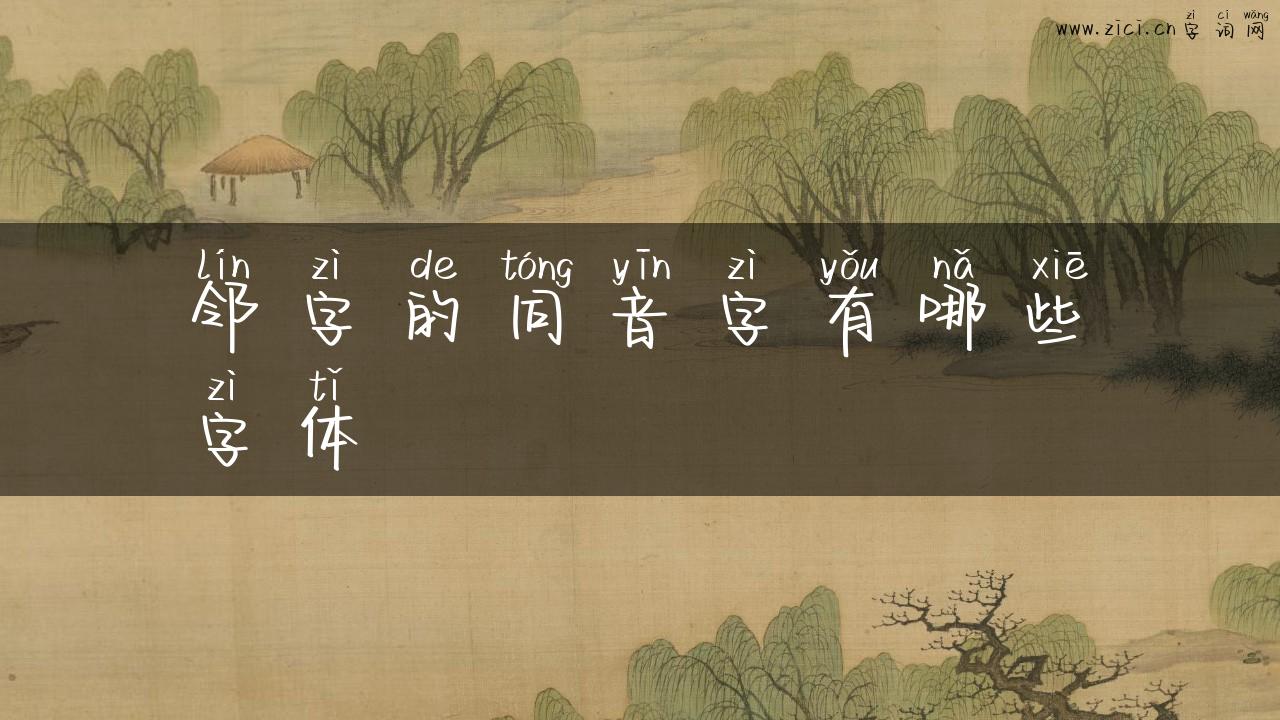 zì cí wǎng
www.zici.cn 字 词 网
lín zì de tóng yīn zì yǒu nǎ xiē
邻 字 的 同 音 字 有 哪 些
zì tǐ
字 体